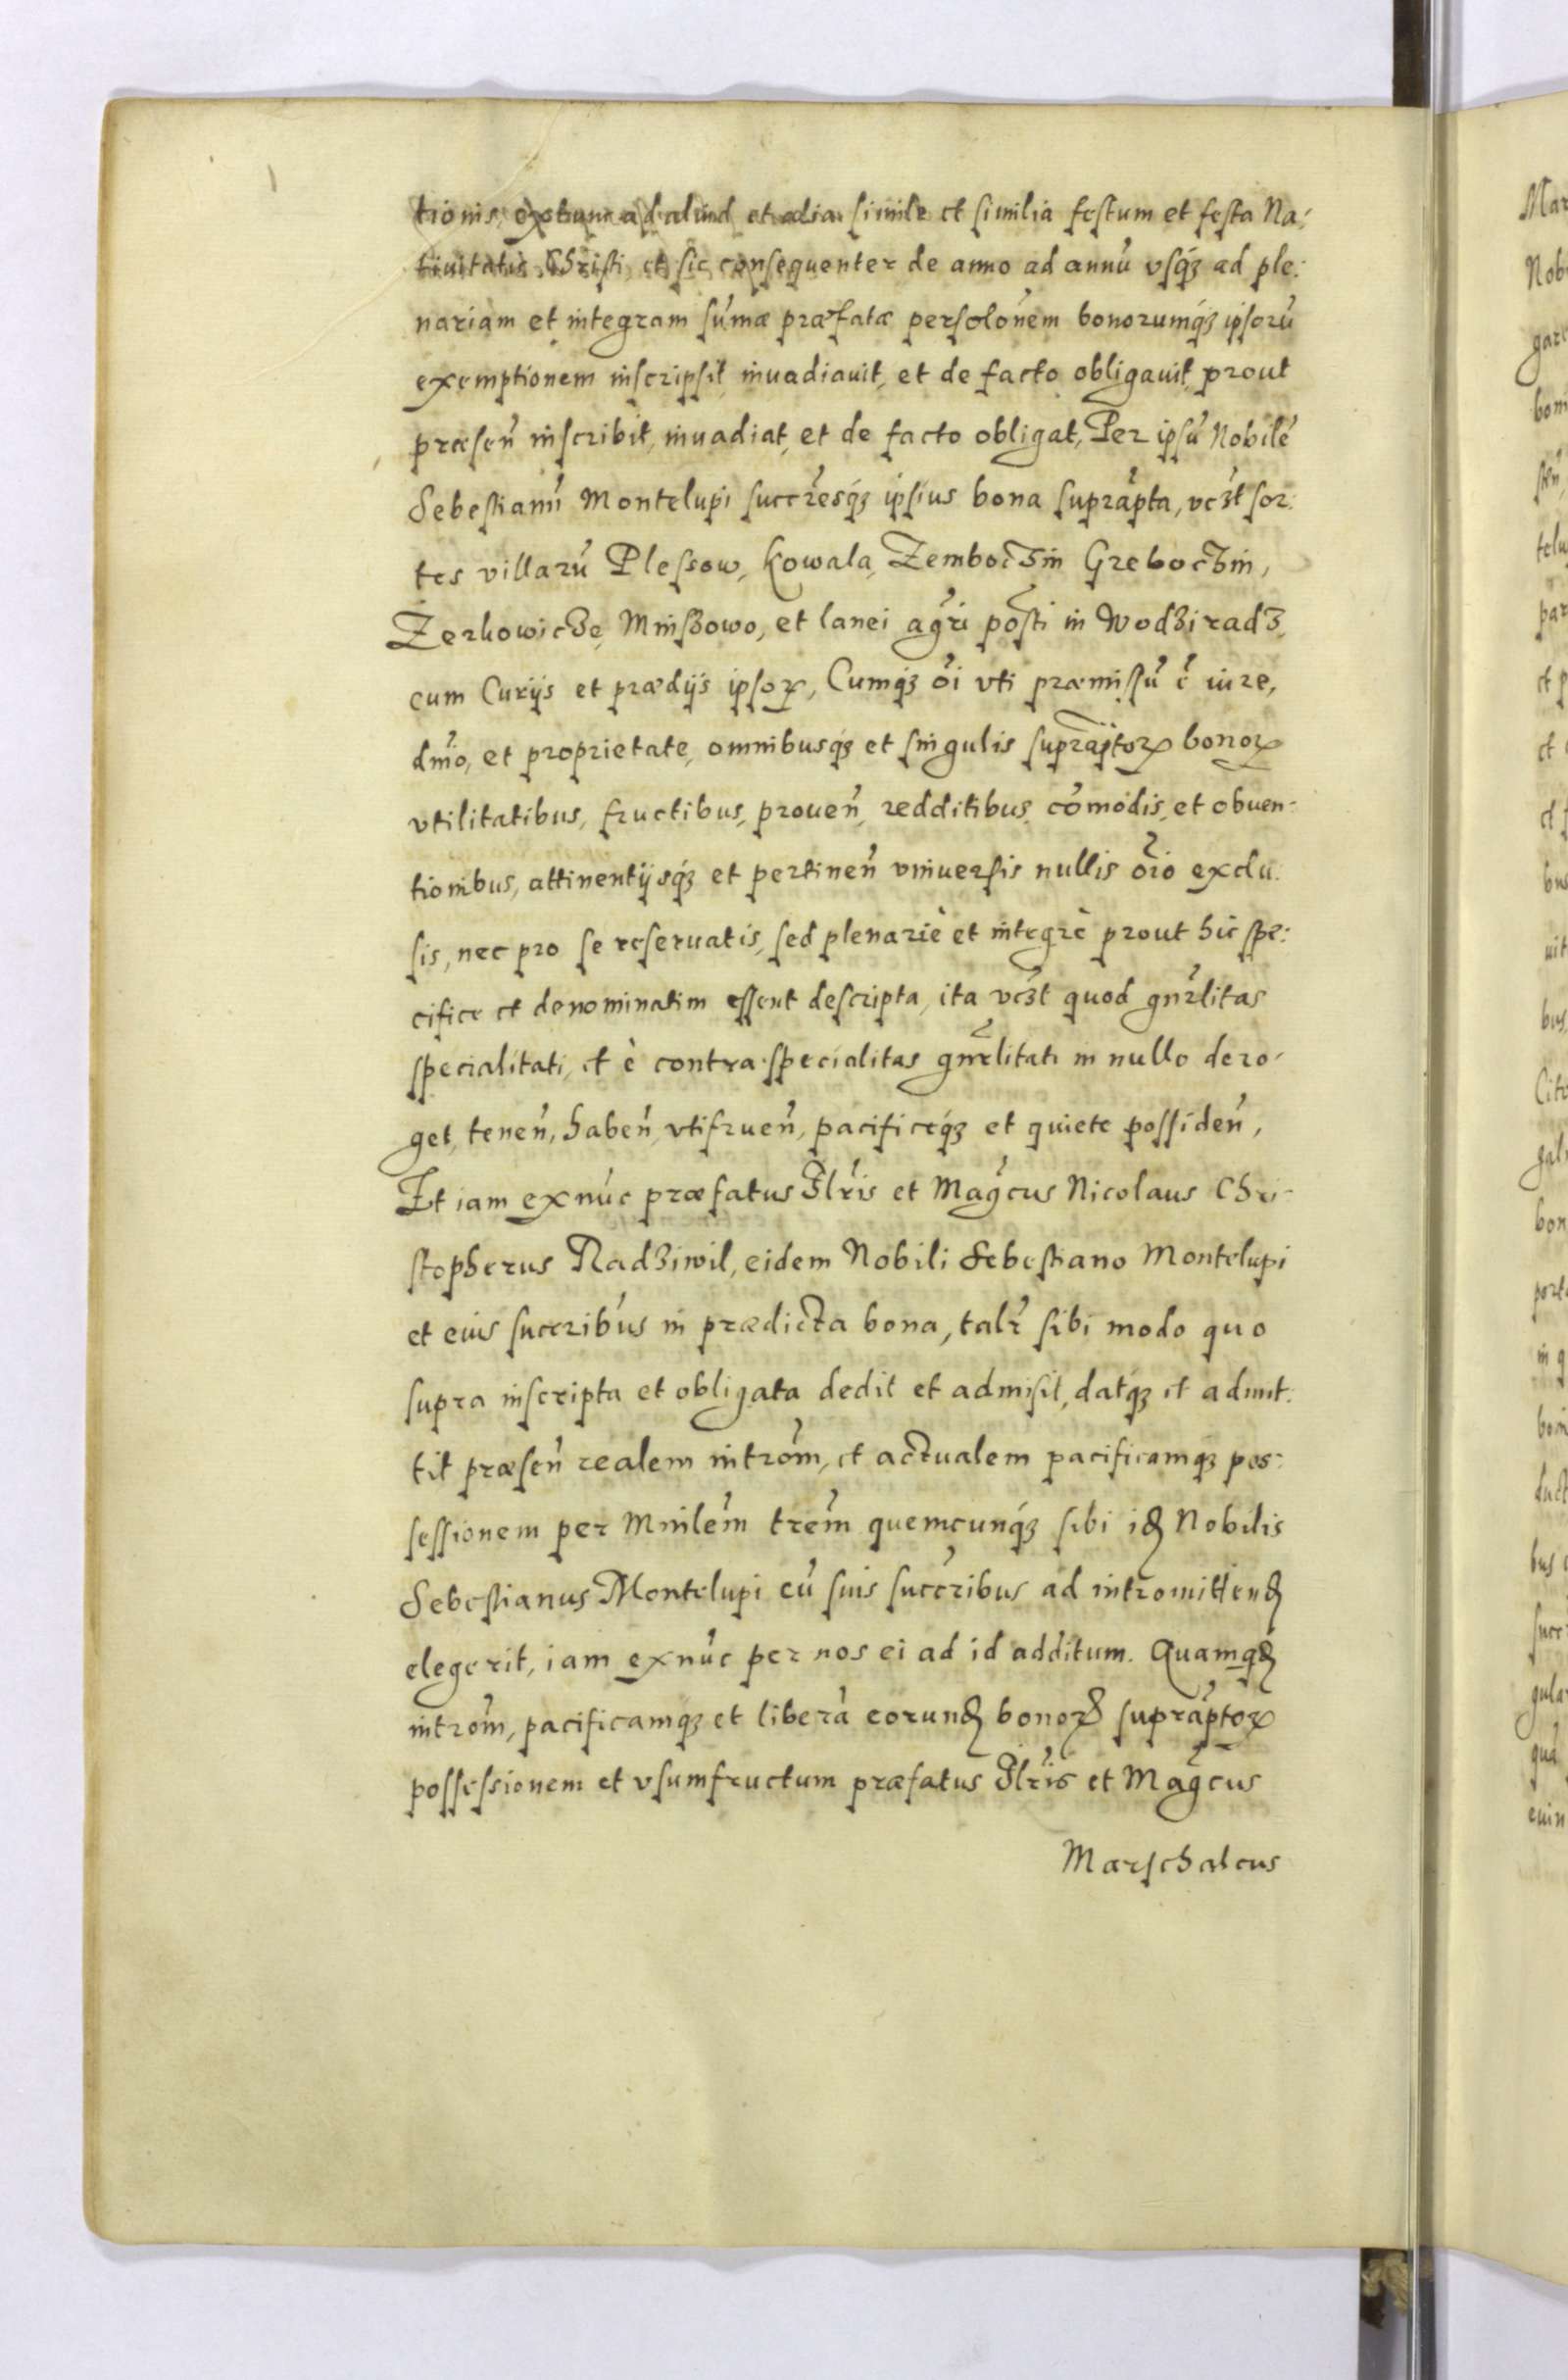 tionis, extunc ad aliud et alia simile et similia festum et festa Na:
tiuitatis Christi, et sic consequenter de anno ad annũ vsq́ꝫ ad ple:
nariam et integram sum̃æ præfatæ persolõnem bonorumq́ꝫ ipsorũ
exemptionem inscripsit, inuadiauit, et de facto obligauit, prout
præseñ inscribit, inuadiat, et de facto obligat, Per ipsũ Nobilẽ
Sebestianũ Montelupi succr̃esq́ꝫ ipsius bona suprap̃ta, vcꝫt sor:
tes villarũ Plessow, Kowala, Zemboczin Greboczin,
Zerkowicze, Minszowo, et lanei agri põsti in Wodziradz,
cum Curijs et prædijs ipsoꝝ, Cumq́ꝫ õi vti præmissũ ẽ iure,
dm̃io, et proprietate, omnibusq́ꝫ et singulis suprap̃toꝝ bonoꝝ
vtilitatibus, fructibus, proueñ, redditibus, com̃odis, et obuen-
tionibus, attinentijsq́ꝫ et pertineñ vniuersis nullis oĩo exclu:
sis, nec pro se reseruatis, sed plenariè et integrè prout hic spe:
cifice et denominatim essent descripta, ita vcꝫt quod gnr̃litas
specialitati, et è contra specialitas gnr̃litati in nullo dero-
get, teneñ, habeñ, vtifrueñ, pacificeq́ꝫ et quiete possideñ,
Et iam exnũc præfatus Illr̃is et Mag̃cus Nicolaus Chri-
stopherus Radziwil, eidem Nobili Sebestiano Montelupi
et eius succrib̃us in prædicta bona, talr̃ sibi modo quo
supra inscripta et obligata dedit et admisit, datq́ꝫ et admit:
tit præseñ realem introm̃, et actualem pacificamq́ꝫ pos:
sessionem per Mnilem̃ trem̃ quemcunq́ꝫ sibi idꝫ Nobilis
Sebestianus Montelupi cũ suis succribus ad intromittendꝫ
elegerit, iam exnũc per nos ei ad id additum. Quamqdꝫ
introm̃, pacificamqꝫ et liberã eorundꝫ bonoꝝ suprap̃toꝝ
possessionem et vsumfructum præfatus Illr̃is et Mag̃cus
Marschalcus